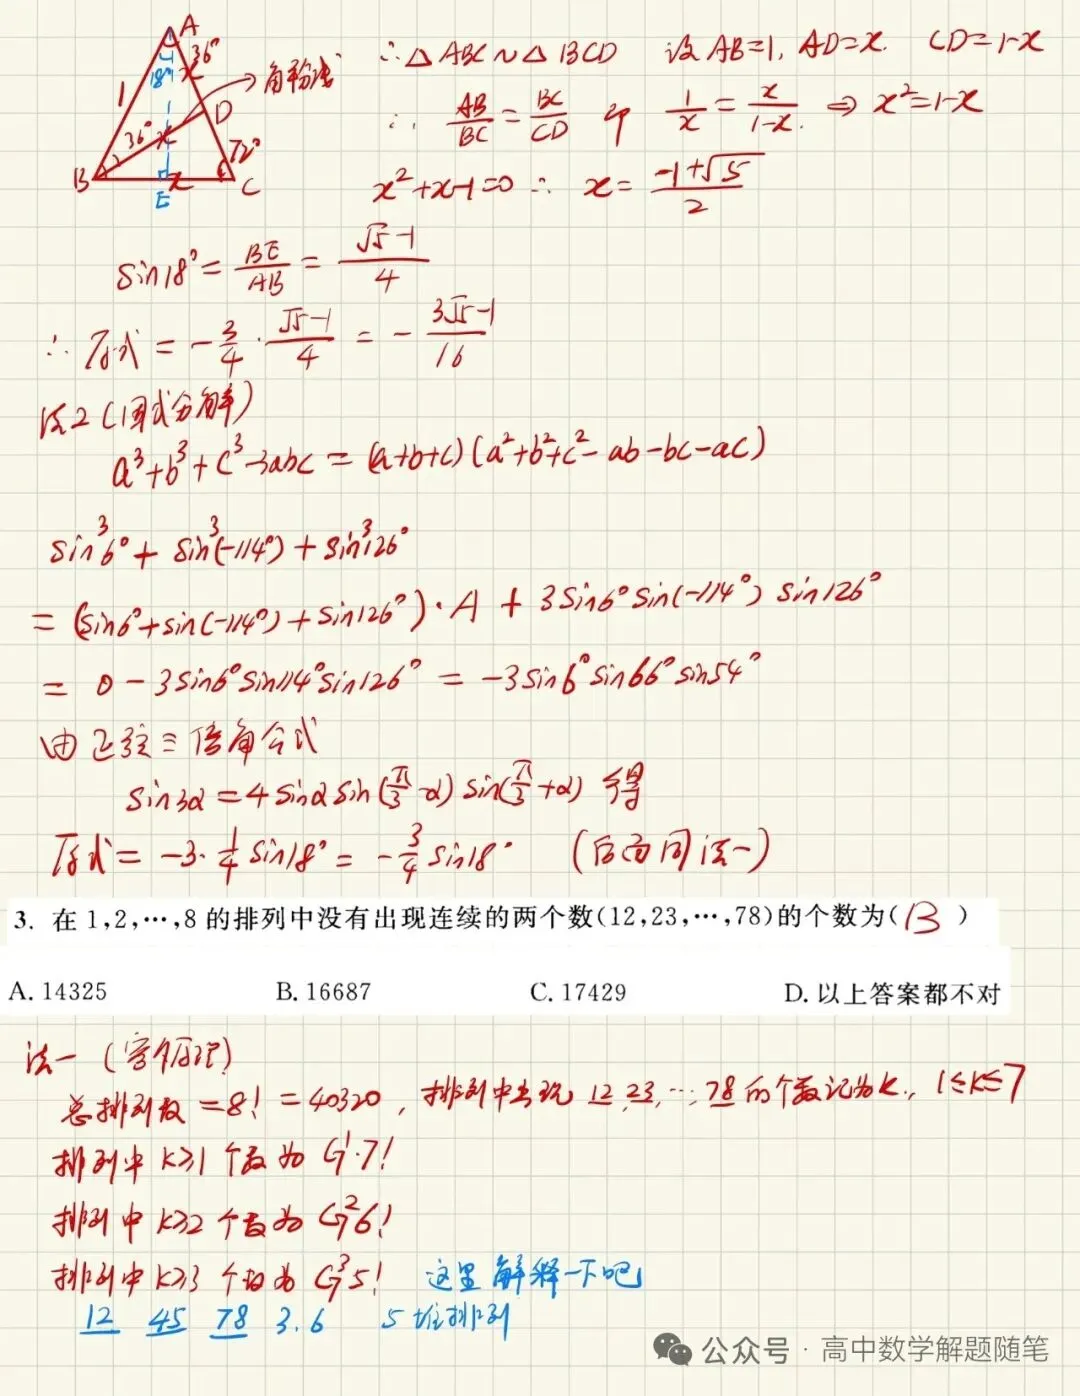 A
36°
18°
x
1
D
→角平分线
36°
x
72°
B
x
C
E
∴△ABC∽△BCD 设AB=1, AD=x. CD=1-x
∴ AB/BC = BC/CD 即 1/x = x/(1-x) ⇒ x²=1-x
x²+x-1=0 ∴ x = (-1+√5)/2
sin18° = BE/AB = (√5-1)/4
∴ 原式 = -3/4 · (√5-1)/4 = - (3√5-1)/16
法2(因式分解)
a³+b³+c³-3abc = (a+b+c)(a²+b²+c²-ab-bc-ac)
sin³6°+ sin³(-114°) + sin³126°
= (sin6°+sin(-114°)+sin126°)·A + 3sin6°sin(-114°) sin126°
= 0 - 3sin6°sin114°sin126° = -3sin6°sin66°sin54°
由正弦三倍角公式
sin3α = 4sinαsin(π/3-α) sin(π/3+α) 得
原式 = -3·1/4 sin18° = -3/4 sin18° (后面同法一)
3. 在1,2,⋯,8的排列中没有出现连续的两个数(12,23,⋯,78)的个数为( B )
A. 14325 B. 16687 C. 17429 D. 以上答案都不对
法一 (容斥原理)
总排列数 = 8! = 40320, 排列中出现 12,23,⋯,78的个数记为k, 1≤k≤7
排列中 k≥1 个数为 C₇¹·7!
排列中 k≥2 个数为 C₇²6!
排列中 k≥3 个数为 C₇³5! 这里解释一下吧
12 45 78 3.6 5堆排列
公众号 · 高中数学解题随笔